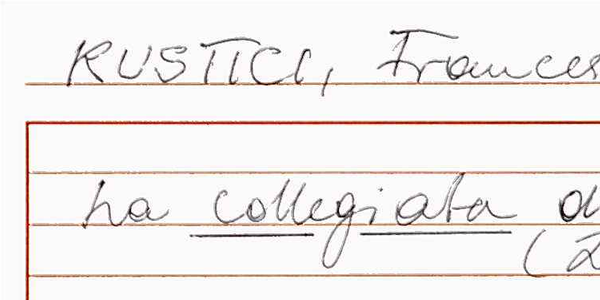 RUSTICI, Frances
La collegiata d
(